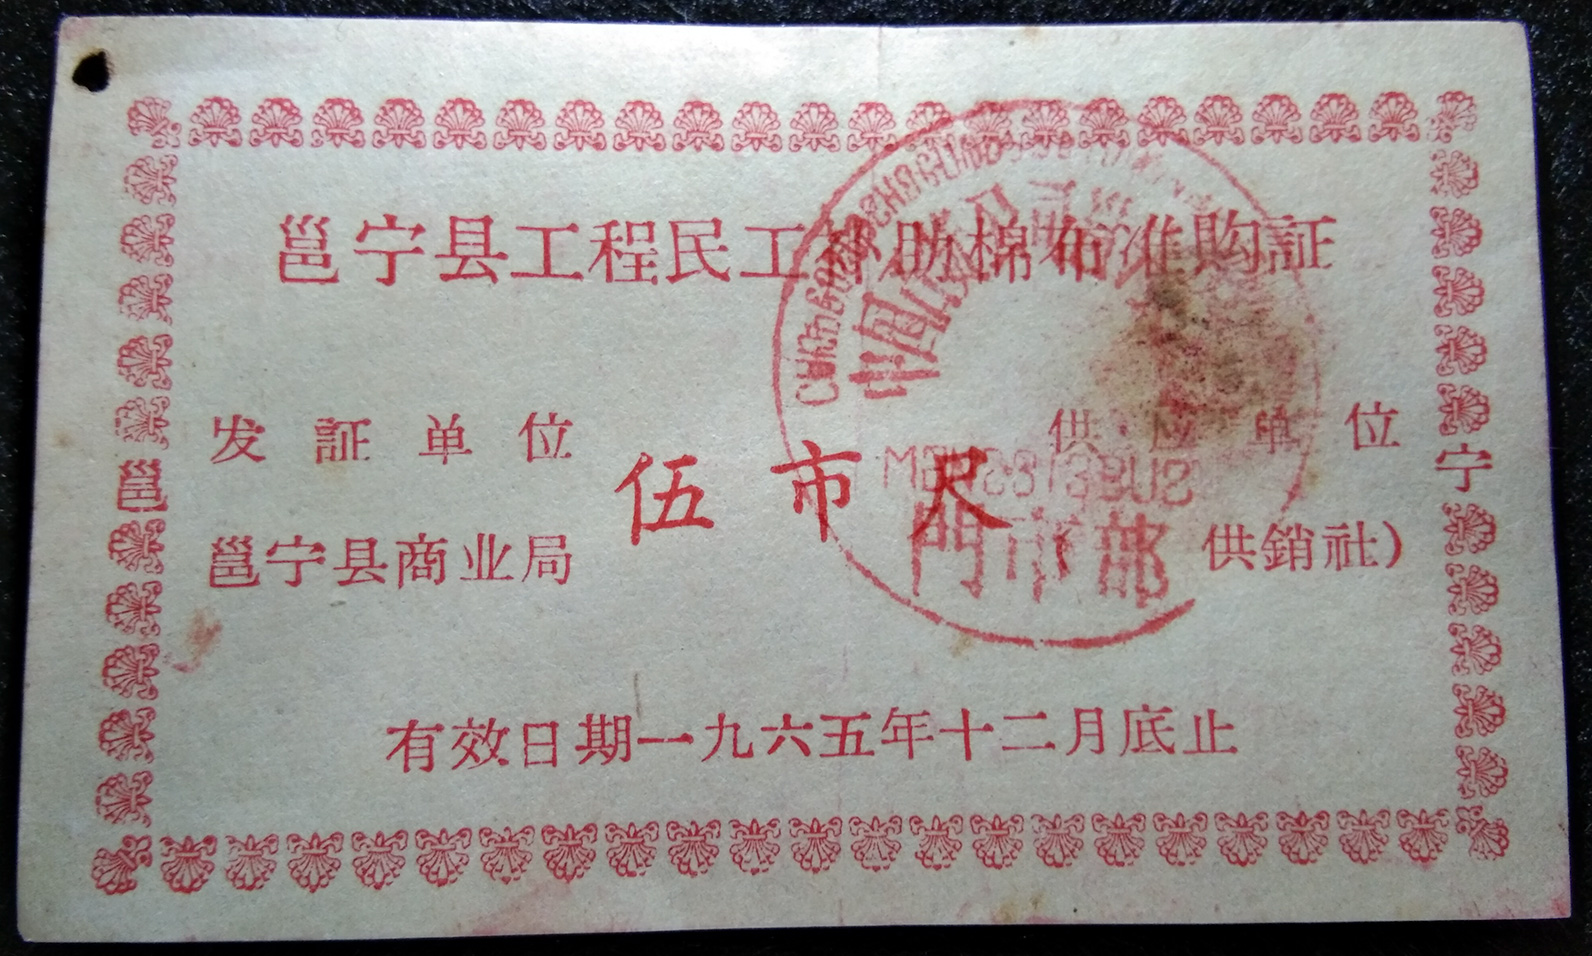 邕宁县工程民工补助棉布准购証
发証单位
供应单位
邕
伍市尺
宁
邕宁县商业局
供銷社）
門市部
有效日期一九六五年十二月底止